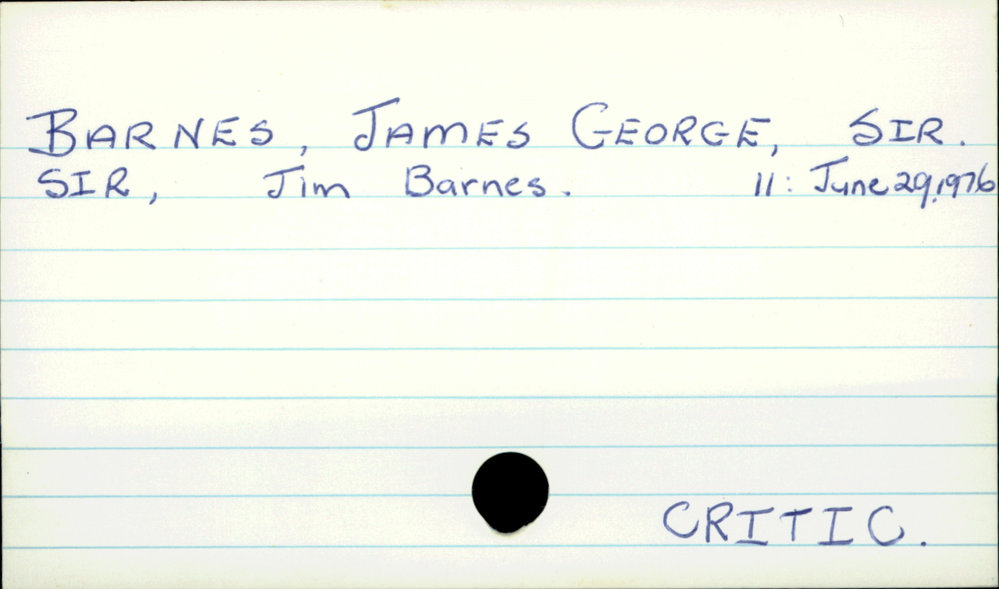 BARNES, JAMES GEORGE, SIR.
SIR, Jim Barnes. 11: June 29, 1976
CRITIC.